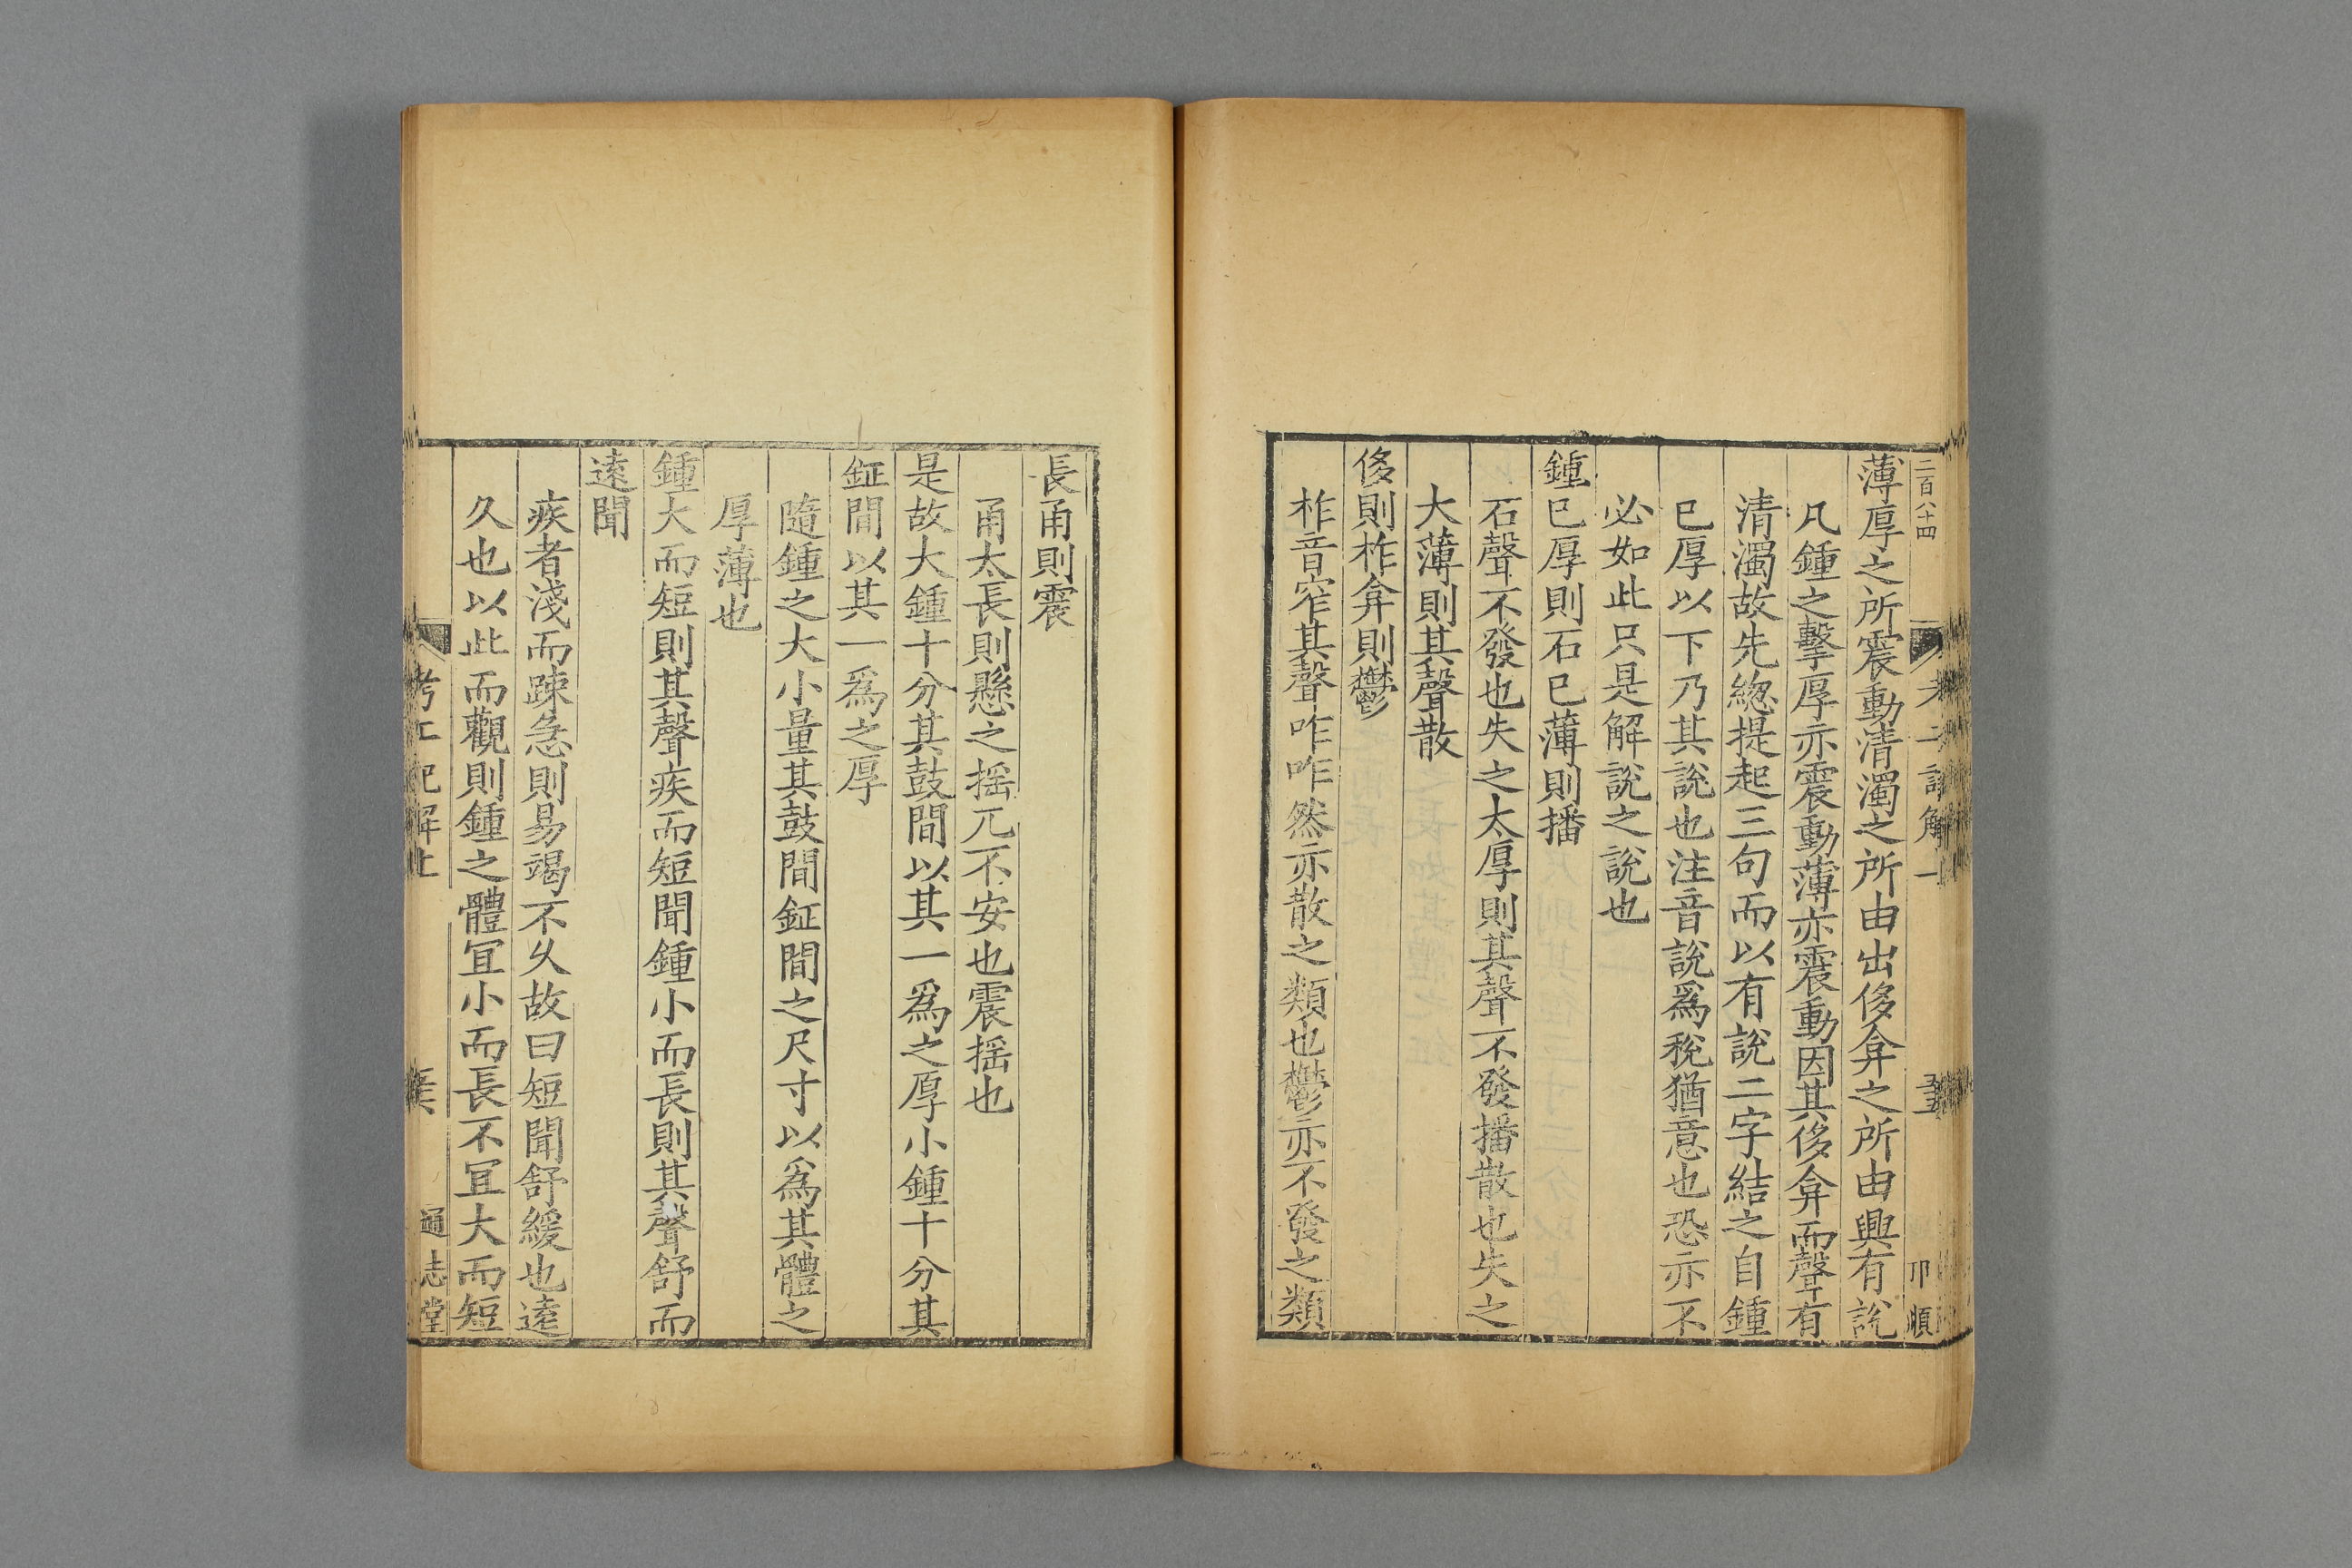 二百八十四
薄厚之所震動清濁之所由出侈弇之所由興有說
凡鍾之擊厚亦震動薄亦震動因其侈弇而聲有
清濁故先緫提起三句而以有說二字結之自鍾
已厚以下乃其說也注音說爲稅猶意也恐亦不
必如此只是解說之說也
鍾已厚則石已薄則播
石聲不發也失之太厚則其聲不發播散也失之
大薄則其聲散
侈則柞弇則鬱
柞音窄其聲咋咋然亦散之類也鬱亦不發之類
長甬則震
甬太長則懸之搖兀不安也震搖也
是故大鍾十分其鼓間以其一爲之厚小鍾十分其
鉦間以其一爲之厚
隨鍾之大小量其鼓間鉦間之尺寸以爲其體之
厚薄也
鍾大而短則其聲疾而短聞鍾小而長則其聲舒而
遠聞
疾者淺而踈急則易竭不久故曰短聞舒緩也遠
久也以此而觀則鍾之體冝小而長不冝大而短
考工記解上
通志堂